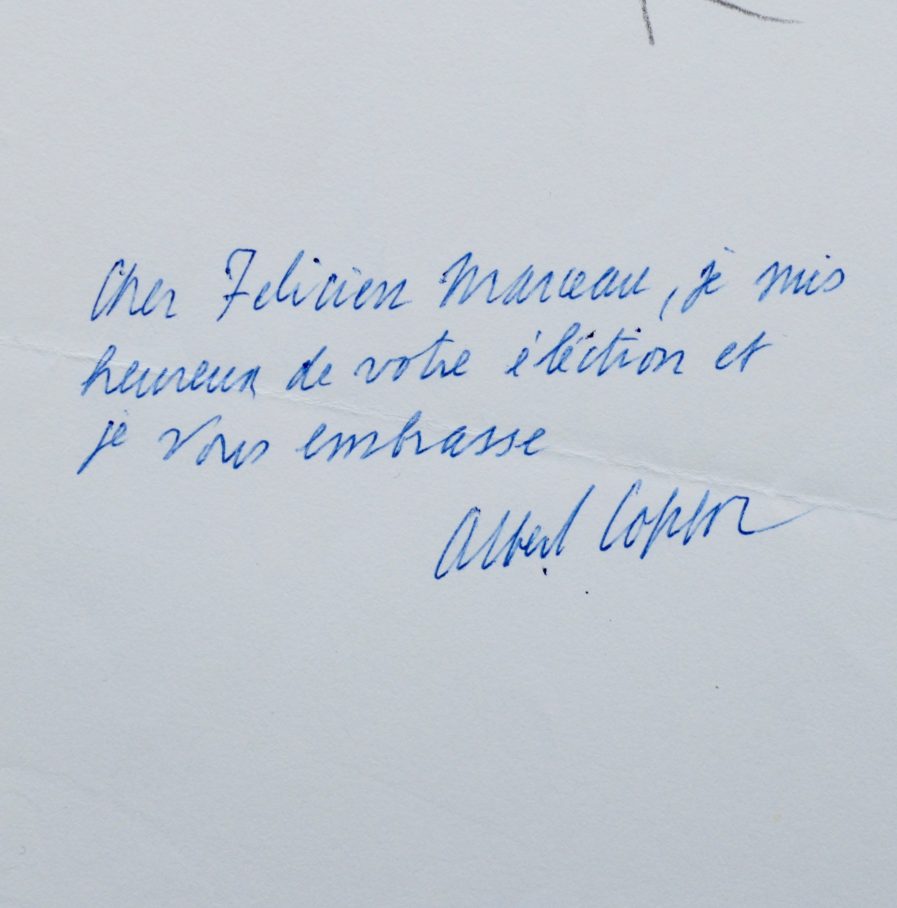 Cher Felicien Marceau, je suis
heureux de votre éléction et
je vous embrasse
Albert